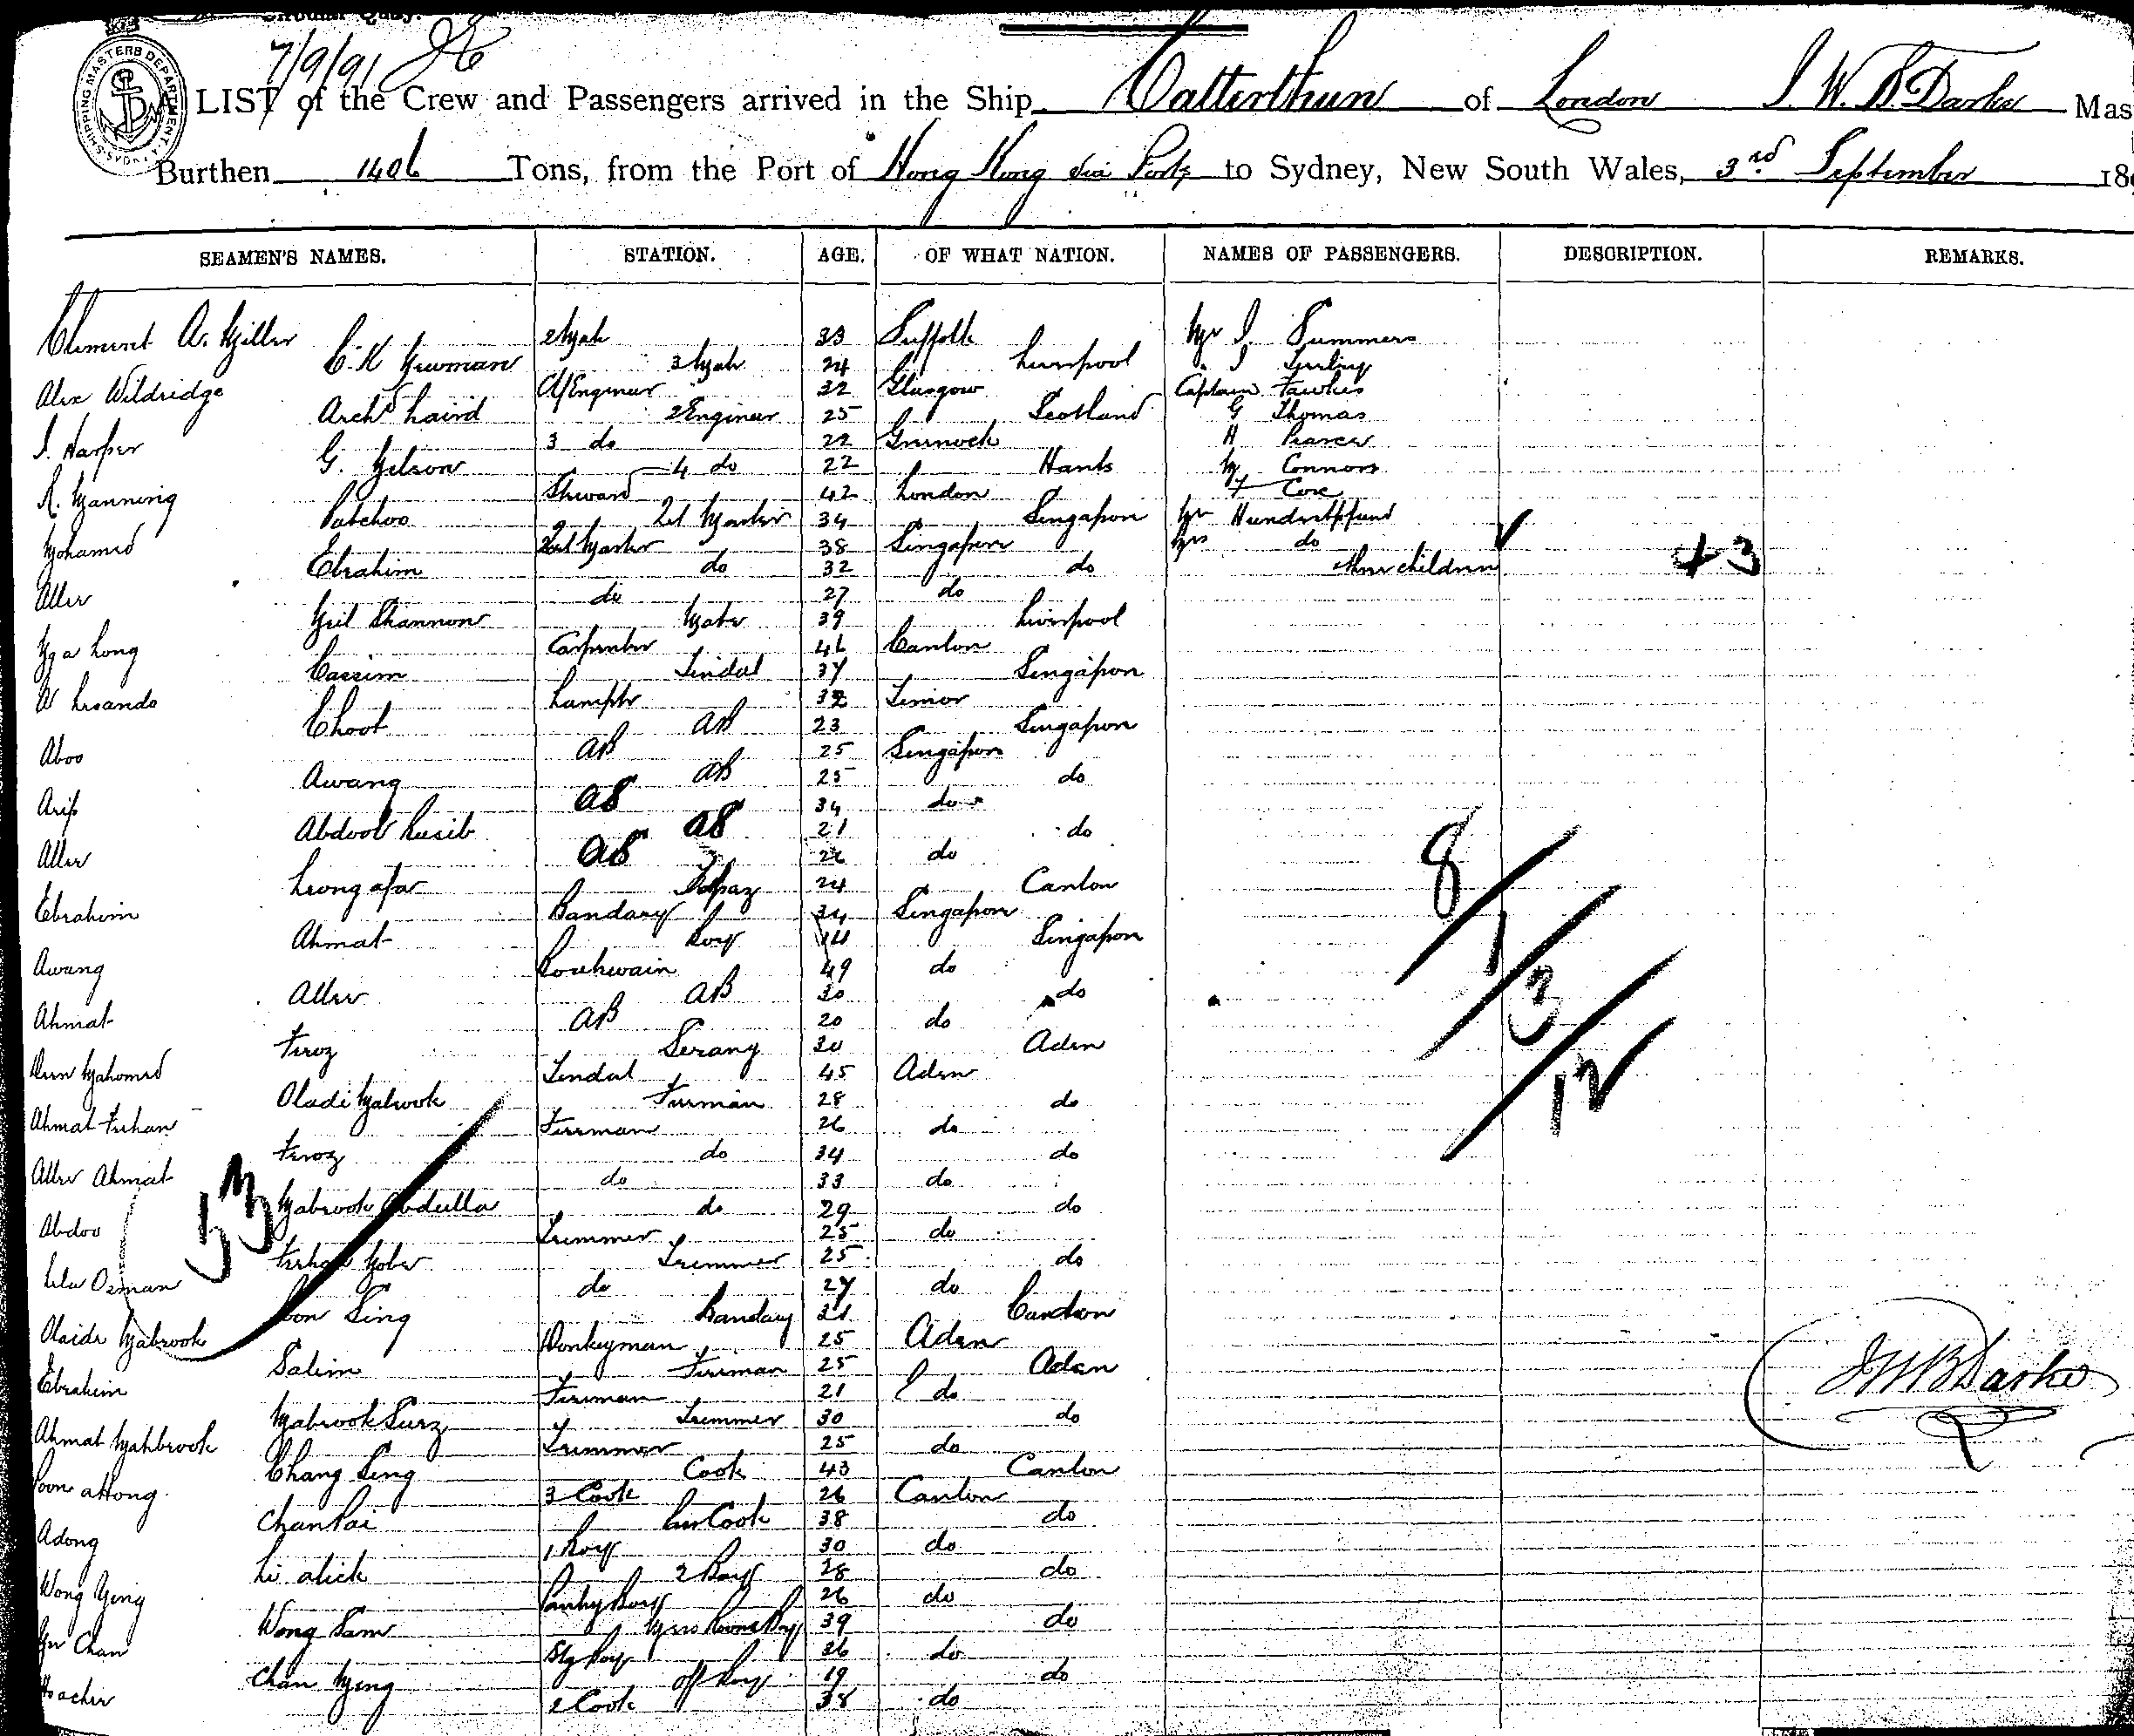 Circular Quay.
7/9/91
SHIPPING MASTERS DEPARTMENT
A LIST of the Crew and Passengers arrived in the Ship Catterthun of London J. W. B. Darke Mas
Burthen 1406 Tons, from the Port of Hong Kong via Ports to Sydney, New South Wales, 3rd September 18
SEAMEN'S NAMES. STATION. AGE. OF WHAT NATION. NAMES OF PASSENGERS. DESCRIPTION. REMARKS.
Clement A. Miller 2 Mate 33 Suffolk Mr J. Summers
C. K Newman 3 Mate 24 Liverpool
Alex Wildridge C/Engineer 32 Glasgow Captain Fawkes
Archd Laird 2 Engineer 25 Scotland G Thomas
J. Harper 3 do 22 Greenock H Pearce
G. Nelson 4 do 22 Hants M Connors
R. Manning Steward 42 London Coxe
Patchoo Qd Master 34 Singapore Mr Hundertpfund
Mohamed Qd Master 38 Singapore Mrs do
Ebrahim do 32 do three children + 3
Allee do 27 do
Neil Shannon Mate 39 Liverpool
Nga Long Carpenter 46 Canton
Cassim Tindal 37 Singapore
Lamptr 32 Timor
Choot AB 23 Singapore
Aboo AB 25 Singapore
Awang AB 25 do
Arip AB 34 do
Abdool AB 21 do
Allee AB 26 do
Leong afar Topaz 24 Canton
Ebrahim Bandary 34 Singapore
Ahmat Boy 14 Singapore
Awang Boatswain 49 do
Allee AB 30 do
Ahmat AB 20 do
Feroz Serang 30 Aden
Deen Mahomed Tindal 45 Aden
Oladi Mabrook Fireman 28 do
Ahmat Ferhan Fireman 26 do
Feroz do 34 do
Allee Ahmat do 33 do
Mabrook Abdulla do 29 do
Abdoo Trimmer 25 do
Trimmer 25 do
Osman do 27 do
Sing Bandary 21 Canton
Mabrook Donkeyman 25 Aden
Salim Fireman 25 Aden
Ebrahim Fireman 21 do
Mabrook Surz Trimmer 30 do
Ahmat Mahbrook Trimmer 25 do
Chang Sing Cook 43 Canton
3 Cook 26 Canton
Chan Pai Cook 38 do
Adong 1 Boy 30 do
Li alick 2 Boy 28 do
Wong Yeng Pantry Boy 26 do
Wong Sam Mess Room Boy 39 do
Chan Boy 36 do
Chan Meng Boy 19 do
2 Cook 38 do
53
8/1/3/12
JWB Darke